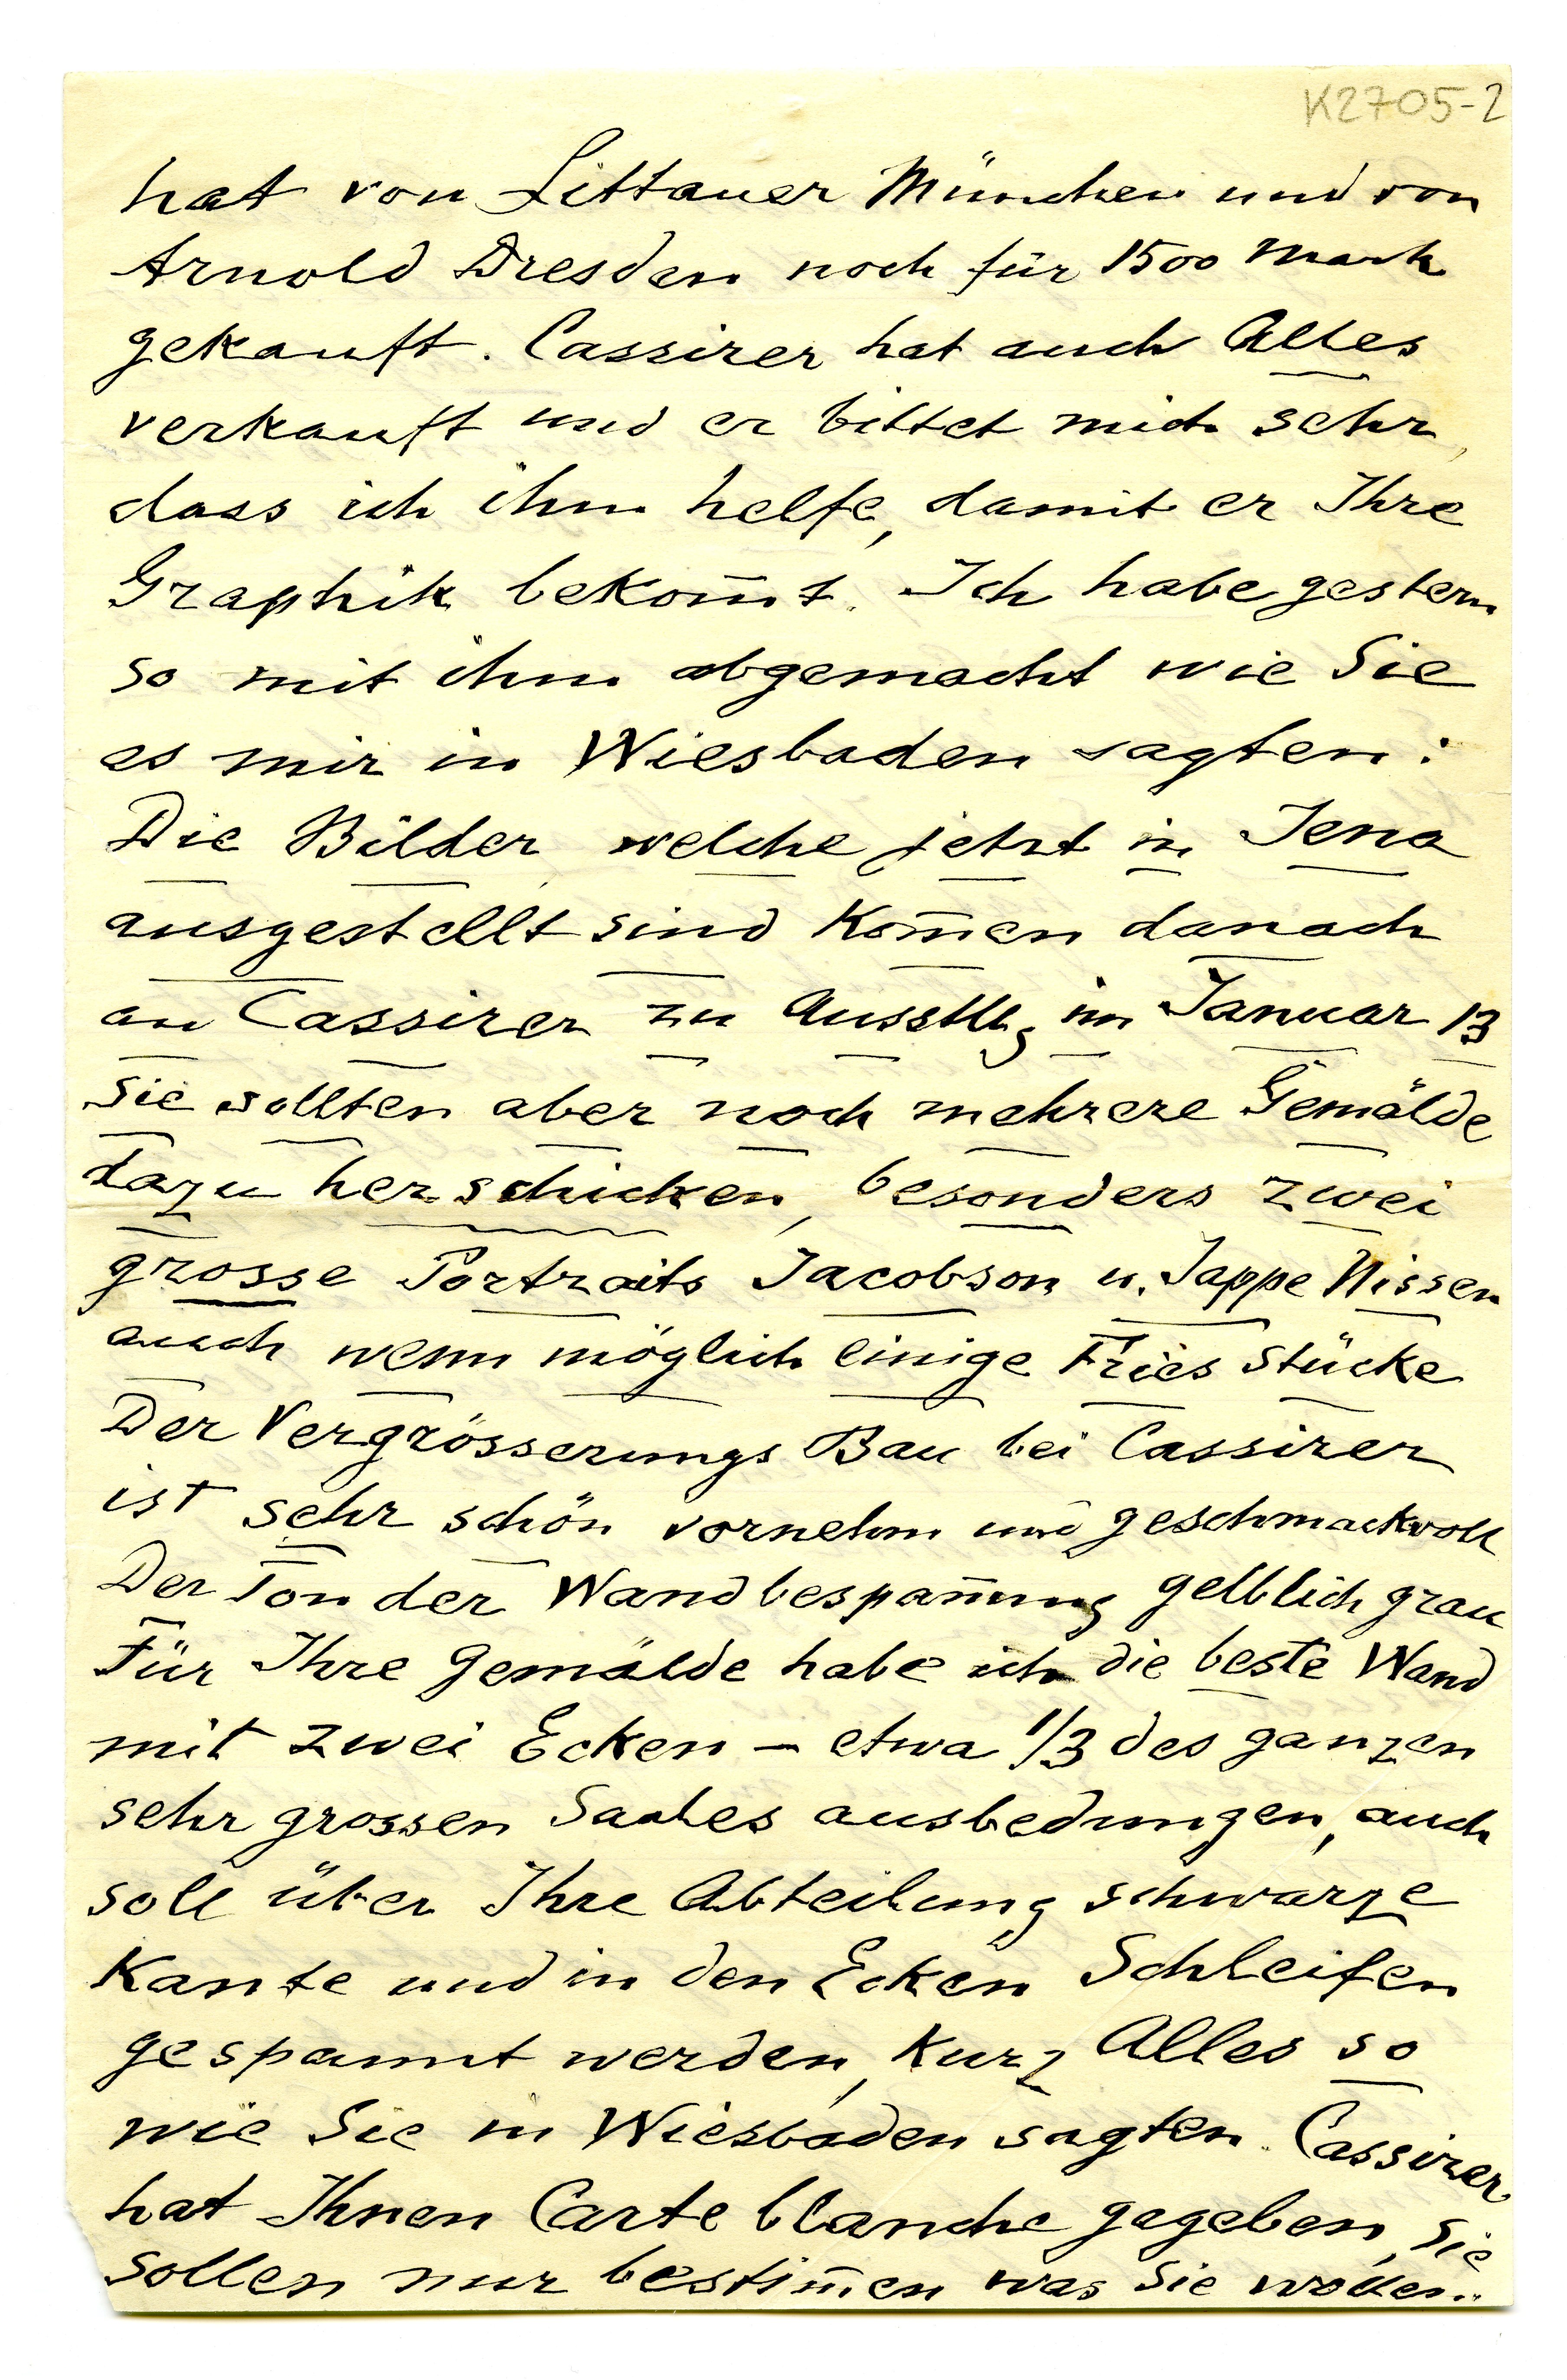 K2705-2
hat von Littauer München und von
Arnold Dresden noch für 1500 Mark
gekauft. Cassirer hat auch Alles
verkauft und er bittet mich sehr,
dass ich ihm helfe, damit er Ihre
Graphik bekom̄t. Ich habe gestern
so mit ihm abgemacht wie Sie
es mir in Wiesbaden sagten:
Die Bilder welche jetzt in Jena
ausgestellt sind kom̄en danach
an Cassirer zu Ausstllg im Januar 13
Sie sollten aber noch mehrere Gemälde
dazu herschicken, besonders zwei
grosse Portraits Jacobson u. Jappe Nissen
auch wenn möglich einige Fries Stücke
Der Vergrösserungs Bau bei Cassirer
ist sehr schön vornehm und geschmackvoll
Der Ton der Wandbespan̄ung gelblich grau
Für Ihre Gemälde habe ich die beste Wand
mit zwei Ecken – etwa 1/3 des ganzen
sehr grossen Saales ausbedungen, auch
soll über Ihre Abteilung schwarze
Kante und in den Ecken Schleifen
gespannt werden, kurz Alles so
wie Sie in Wiesbaden sagten. Cassirer
hat Ihnen Carte blanche gegeben, Sie
sollen nur bestim̄en was Sie wollen..